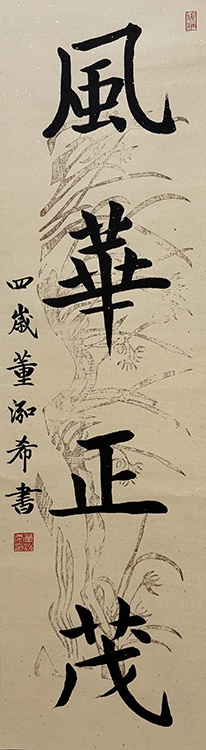 風華正茂
四歲董泓希書